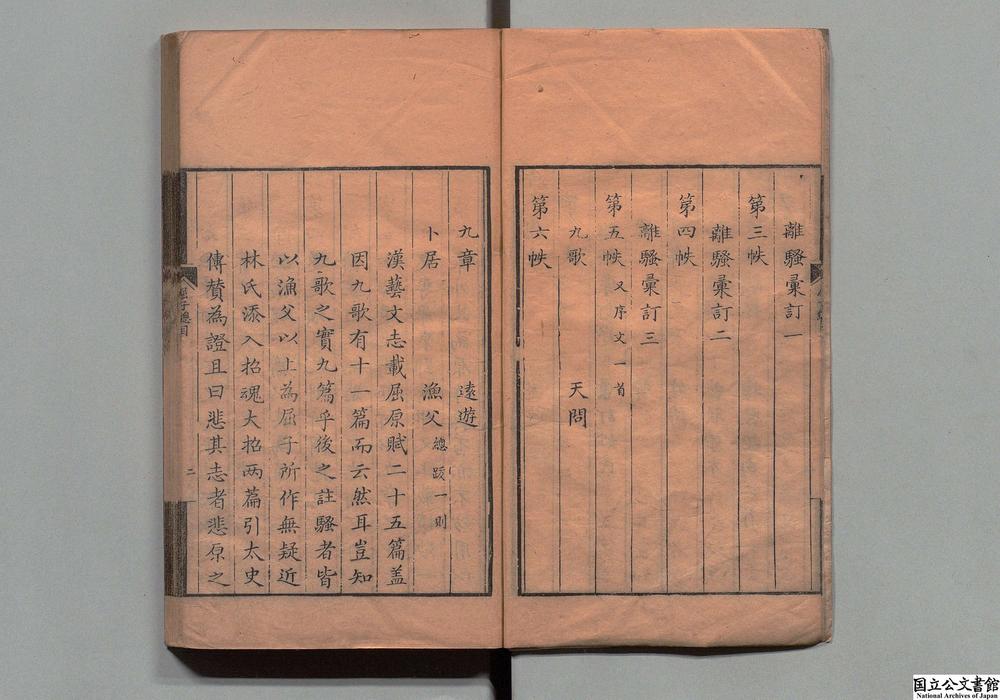 離騷彙訂一
第三帙
離騷彙訂二
第四帙
離騷彙訂三
第五帙 又序文一首
九歌 天問
第六帙
九章 遠遊
卜居 漁父 總跋一則
漢藝文志載屈原賦二十五篇蓋
因九歌有十一篇而云然耳豈知
九歌之實九篇乎後之註騷者皆
以漁父以上為屈子所作無疑近
林氏添入招魂大招两篇引太史
傳贊為證且曰悲其志者悲原之
屈子總目
二
国立公文書館
National Archives of Japan